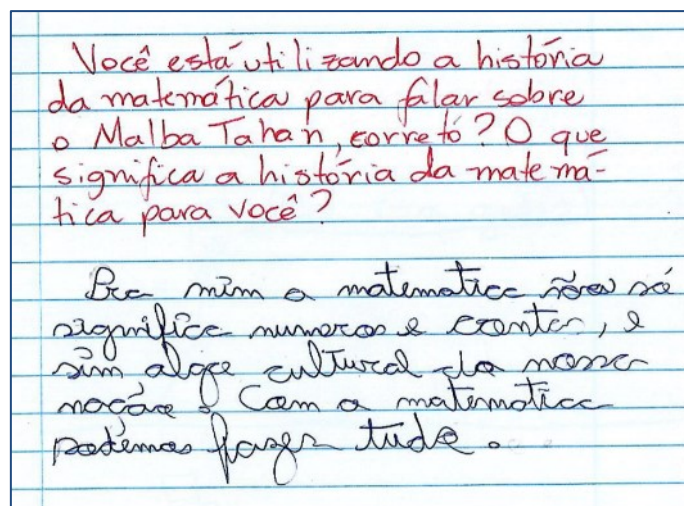 Você está utilizando a história
da matemática para falar sobre
o Malba Tahan, correto? O que
significa a história da matemá-
tica para você?
Pra mim a matematica não só
significa numeros e contas, e
sim algo cultural da nossa
nação. Com a matematica
podemos fazer tudo.